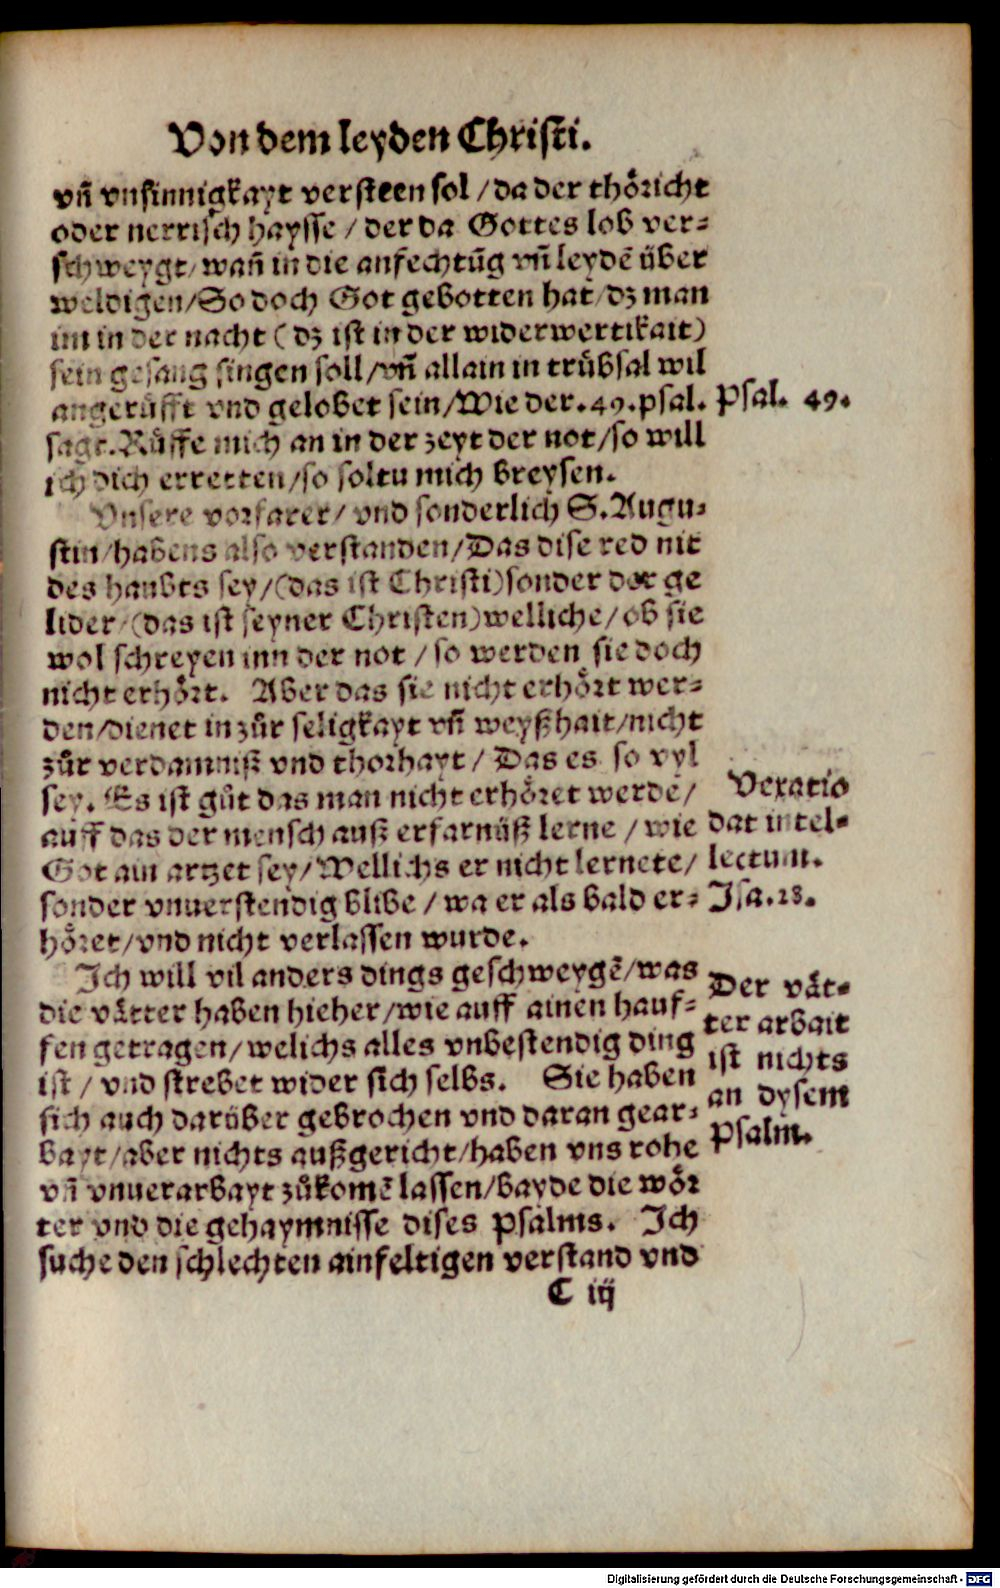 Von dem leyden Christi.
vñ vnsinnigkayt versteen sol / da der thöricht
oder nerrisch haysse / der da Gottes lob ver-
schweygt / wañ in die anfechtũg vñ leydẽ über
weldigen / So doch Got gebotten hat / dz man
im in der nacht ( dz ist in der widerwertikait )
sein gesang singen soll / vñ allain in trübsal wil
angerůfft vnd gelobet sein / Wie der .49. psal.
Psal. 49.
sagt. Růffe mich an in der zeyt der not / so will
ich dich erretten / so soltu mich breysen.
Vnsere vorfarer / vnd sonderlich S. Augu-
stin / habens also verstanden / Das dise red nit
des haubts sey / (das ist Christi) sonder der ge
lider / (das ist seyner Christen) welliche / ob sie
wol schreyen inn der not / so werden sie doch
nicht erhört. Aber das sie nicht erhört wer-
den / dienet in zůr seligkayt vñ weyßhait / nicht
zůr verdamniß vnd thorhayt / Das es so vyl
sey. Es ist gůt das man nicht erhöret werdẽ /
auff das der mensch auß erfarnüß lerne / wie
Got ain artzet sey / Wellichs er nicht lernete /
sonder vnuerstendig blibe / wa er als bald er-
höret / vnd nicht verlassen wurde.
Vexatio
dat intel-
lectum.
Isa. 28.
Ich will vil anders dings geschweygẽ / was
die vätter haben hieher / wie auff ainen hauf-
fen getragen / welichs alles vnbestendig ding
ist / vnd strebet wider sich selbs. Sie haben
sich auch darüber gebrochen vnd daran gear-
bayt / aber nichts außgericht / haben vns rohe
vñ vnuerarbayt zůkomẽ lassen / bayde die wör
ter vnd die gehaymnisse dises Psalms. Ich
suche den schlechten ainfeltigen verstand vnd
Der vät-
ter arbait
ist nichts
an dysem
Psalm.
C iij
Digitalisierung gefördert durch die Deutsche Forschungsgemeinschaft - DFG